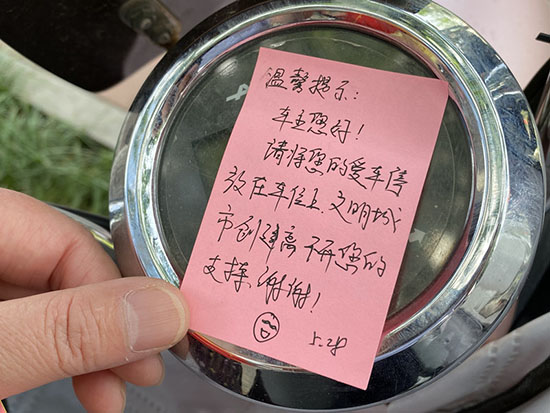 温馨提示：
车主您好！
请将您的爱车停
放在车位上，文明城
市创建离不开您的
支持，谢谢！
5.28